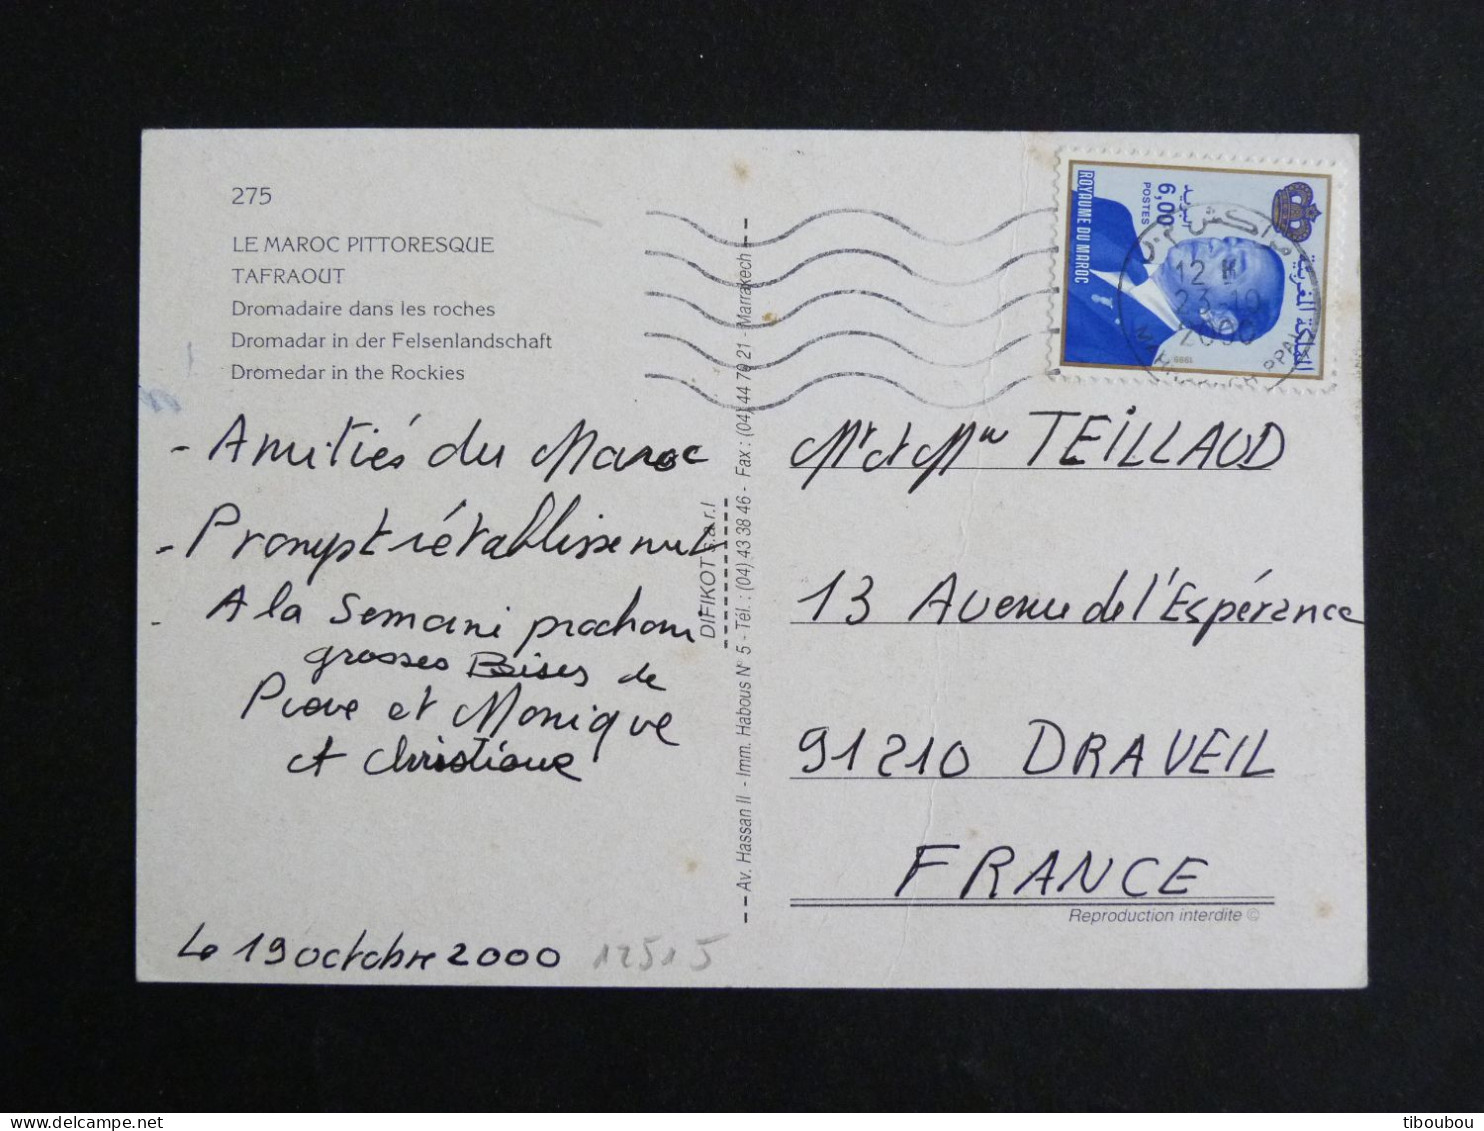 275
LE MAROC PITTORESQUE
TAFRAOUT
Dromadaire dans les roches
Dromadar in der Felsenlandschaft
Dromedar in the Rockies
- Amitiés du Maroc
- Prompt rétablissement
A la Semaine prochaine
grosses Bises de
et Monique
et Christiane
Le 19 octobre 2000
12515
DIFIKOT s.a.r.l
Av. Hassan II - Imm. Habous N° 5 - Tél. : (04) 43 38 46 - Fax : (04) 44 70 21 - Marrakech
ROYAUME DU MAROC
POSTES
6,00
بريد
المملكة المغربية
1999
مراكش
12 H
23-10
2000
Mr et Mme TEILLAUD
13 Avenue de l'Espérance
91210 DRAVEIL
FRANCE
Reproduction interdite ©
tiboubou